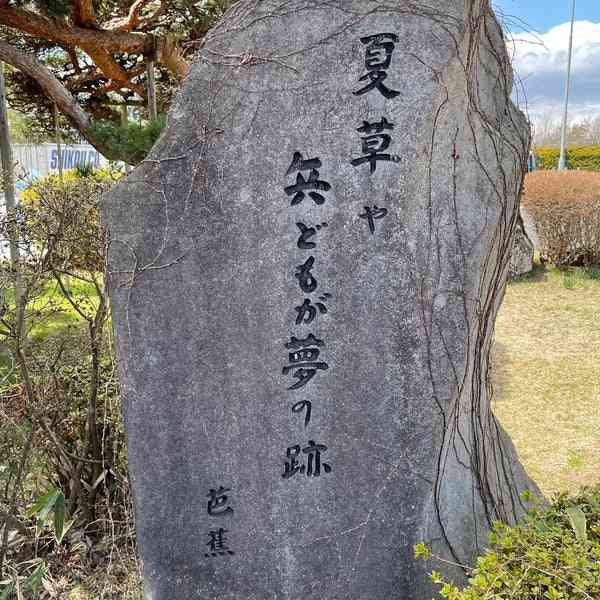 夏草や
兵どもが夢の跡
芭蕉